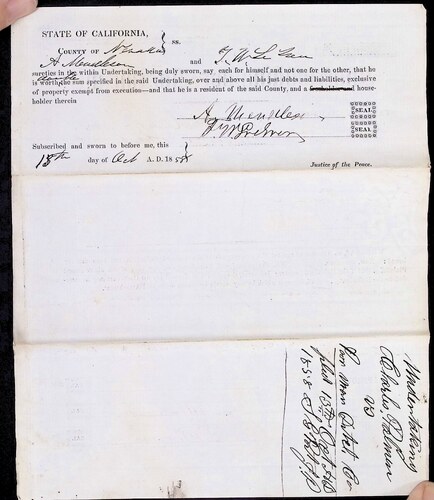 STATE OF CALIFORNIA,
ss.
COUNTY OF Nevada
A Mendleson and T. W.
sureties in the within Undertaking, being duly sworn, say, each for himself and not one for the other, that he
is worth double the sum specified in the said Undertaking, over and above all his just debts and liabilities, exclusive
of property exempt from execution—and that he is a resident of the said County, and a freeholder and house-
holder therein
SEAL
SEAL
Subscribed and sworn to before me, this
13th day of Oct A. D. 1858
Justice of the Peace.
Undertaking
Charles Palmer
vs
Oct AD
1858